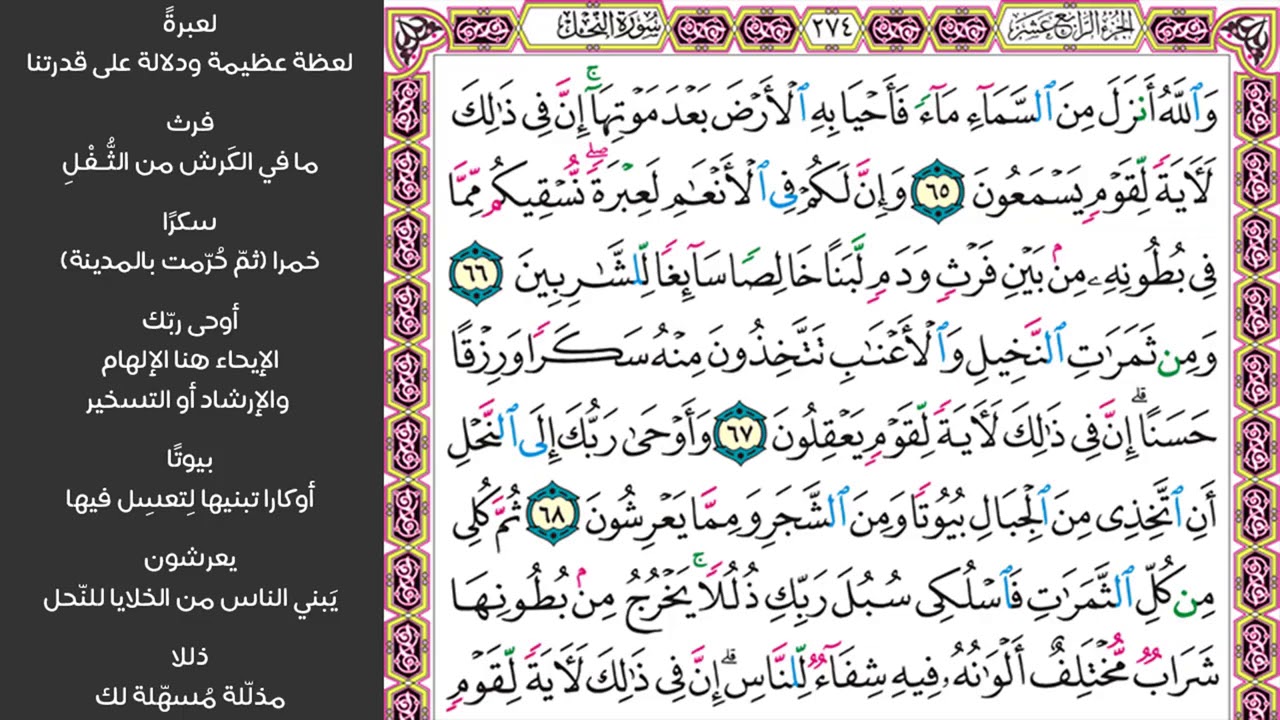 الجزء الرابع عشر
٢٧٤
سورة النحل
وَٱللَّهُ أَنزَلَ مِنَ ٱلسَّمَآءِ مَآءٗ فَأَحۡيَا بِهِ ٱلۡأَرۡضَ بَعۡدَ مَوۡتِهَآۚ إِنَّ فِي ذَٰلِكَ
لَأٓيَةٗ لِّقَوۡمٖ يَسۡمَعُونَ ٦٥ وَإِنَّ لَكُمۡ فِي ٱلۡأَنۡعَٰمِ لَعِبۡرَةٗۖ نُّسۡقِيكُم مِّمَّا
فِي بُطُونِهِۦ مِنۢ بَيۡنِ فَرۡثٖ وَدَمٖ لَّبَنًا خَالِصٗا سَآئِغٗا لِّلشَّٰرِبِينَ ٦٦
وَمِن ثَمَرَٰتِ ٱلنَّخِيلِ وَٱلۡأَعۡنَٰبِ تَتَّخِذُونَ مِنۡهُ سَكَرٗا وَرِزۡقًا
حَسَنًاۚ إِنَّ فِي ذَٰلِكَ لَأٓيَةٗ لِّقَوۡمٖ يَعۡقِلُونَ ٦٧ وَأَوۡحَىٰ رَبُّكَ إِلَى ٱلنَّحۡلِ
أَنِ ٱتَّخِذِي مِنَ ٱلۡجِبَالِ بُيُوتٗا وَمِنَ ٱلشَّجَرِ وَمِمَّا يَعۡرِشُونَ ٦٨ ثُمَّ كُلِي
مِن كُلِّ ٱلثَّمَرَٰتِ فَٱسۡلُكِي سُبُلَ رَبِّكِ ذُلُلٗاۚ يَخۡرُجُ مِنۢ بُطُونِهَا
شَرَابٞ مُّخۡتَلِفٌ أَلۡوَٰنُهُۥ فِيهِ شِفَآءٞ لِّلنَّاسِۚ إِنَّ فِي ذَٰلِكَ لَأٓيَةٗ لِّقَوۡمٖ
لعبرةً
لعظة عظيمة ودلالة على قدرتنا
فرث
ما في الكَرش من الثُّفْلِ
سكرًا
خمرا (ثمّ حُرّمت بالمدينة)
أوحى ربّك
الإيحاء هنا الإلهام
والإرشاد أو التسخير
بيوتًا
أوكارا تبنيها لِتعسِل فيها
يعرشون
يَبني الناس من الخلايا للنّحل
ذللا
مذلّلة مُسهّلة لك